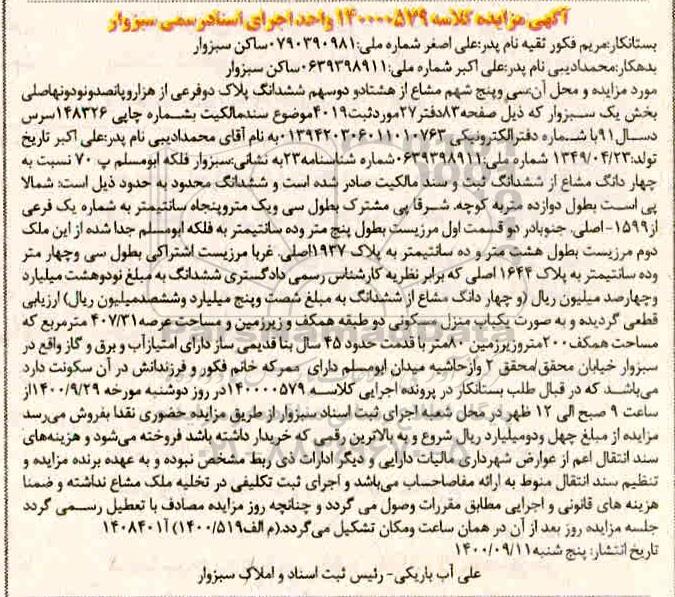 آگهی مزایده کلاسه ۱۴۰۰۰۰۵۷۹ واحد اجرای اسنادرسمی سبزوار
بستانکار:مریم فکور ثقیه نام پدر:علی اصغر شماره ملی:۰۷۹۰۳۹۰۹۸۱ساکن سبزوار
بدهکار:محمدادیبی نام پدر:علی اکبر شماره ملی:۰۶۳۹۳۹۸۹۱۱ساکن سبزوار
مورد مزایده و محل آن:سی وپنج شهم مشاع از هشتادو دوسهم ششدانگ پلاک دوفرعی از هزاروپانصدونودونهاصلی
بخش یک سبزوار که ذیل صفحه۸۳دفتر۲۷موردثبت۴۰۱۹موضوع سندمالکیت بشماره چاپی ۱۴۸۳۲۶سرس
دسال۹۱با شماره دفترالکترونیکی ۰۱۳۹۴۲۰۳۰۶۰۱۱۰۱۰۷۶۳به نام آقای محمدادیبی نام پدر:علی اکبر تاریخ
تولد:۱۳۴۹/۰۴/۲۳ شماره ملی:۰۶۳۹۳۹۸۹۱۱شماره شناسنامه۲۳به نشانی:سبزوار فلکه ابومسلم پ ۷۰ نسبت به
چهار دانگ مشاع از ششدانگ ثبت و سند مالکیت صادر شده است و ششدانگ محدود به حدود ذیل است: شمالا
پی است بطول دوازده متربه کوچه. شرقا پی مشترک بطول سی ویک متروپنجاه سانتیمتر به شماره یک فرعی
از۱۵۹۹- اصلی. جنوبادر دو قسمت اول مرزیست بطول پنج متر وده سانتیمتر به فلکه ابومسلم جدا شده از این ملک
دوم مرزیست بطول هشت متر و ده سانتیمتر به پلاک ۱۹۳۷اصلی. غربا مرزیست اشتراکی بطول سی وچهار متر
وده سانتیمتر به پلاک ۱۶۴۴ اصلی که برابر نظریه کارشناس رسمی دادگستری ششدانگ به مبلغ نودوهشت میلیارد
وچهارصد میلیون ریال (و چهار دانگ مشاع از ششدانگ به مبلغ شصت وپنج میلیارد وششصدمیلیون ریال) ارزیابی
قطعی گردیده و به صورت یکباب منزل مسکونی دو طبقه همکف و زیرزمین و مساحت عرصه۴۰۷/۳۱ مترمربع که
مساحت همکف۲۰۰متروزیرزمین ۸۰متر با قدمت حدود ۴۵ سال بنا قدیمی ساز دارای امتیازآب و برق و گاز واقع در
سبزوار خیابان محقق/محقق ۲ وازحاشیه میدان ابومسلم دارای ممرکه خانم فکور و فرزندانش در آن سکونت دارد
می‌باشد که در قبال طلب بستانکار در پرونده اجرایی کلاسه ۱۴۰۰۰۰۵۷۹در روز دوشنبه مورخه ۱۴۰۰/۹/۲۹از
ساعت ۹ صبح الی ۱۲ ظهر در محل شعبه اجرای ثبت اسناد سبزوار از طریق مزایده حضوری نقدا بفروش می‌رسد
مزایده از مبلغ چهل ودومیلیارد ریال شروع و به بالاترین رقمی که خریدار داشته باشد فروخته می‌شود و هزینه‌های
سند انتقال اعم از عوارض شهرداری مالیات دارایی و دیگر ادارات ذی ربط مشخص نبوده و به عهده برنده مزایده و
تنظیم سند انتقال منوط به ارائه مفاصاحساب می‌باشد و اجرای ثبت تکلیفی در تخلیه ملک مشاع نداشته و ضمنا
هزینه های قانونی و اجرایی مطابق مقررات وصول می گردد و چنانچه روز مزایده مصادف با تعطیل رسمی گردد
جلسه مزایده روز بعد از آن در همان ساعت ومکان تشکیل می‌گردد.(م الف۱۴۰۰/۵۱۹) آ۱۴۰۸۴۰۱
تاریخ انتشار: پنج شنبه۱۴۰۰/۰۹/۱۱
علی آب باریکی- رئیس ثبت اسناد و املاک سبزوار